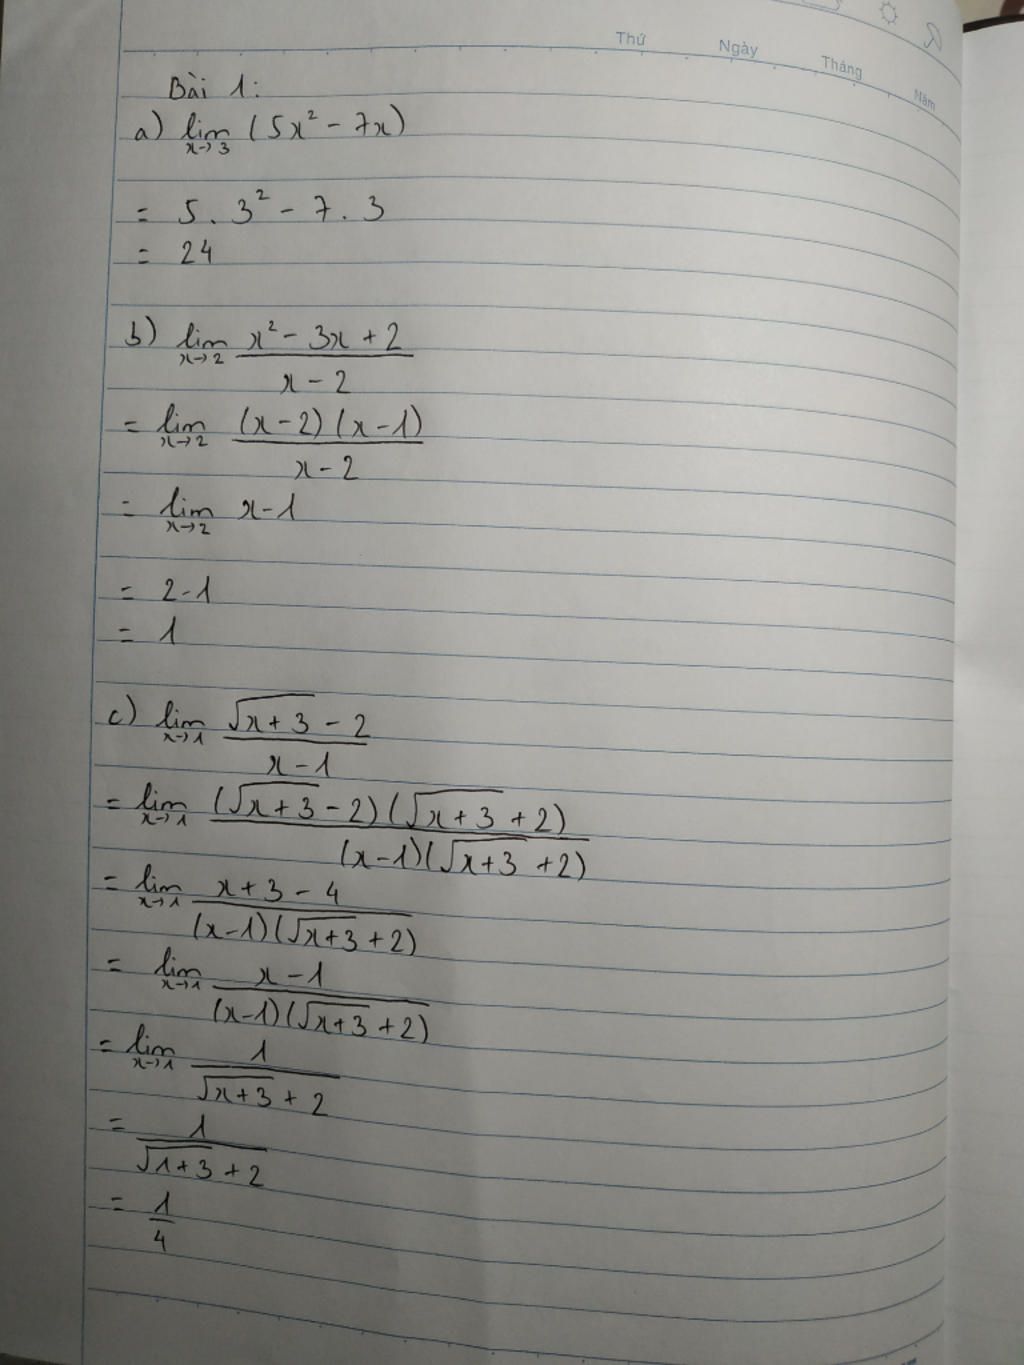 Thứ Ngày Tháng Năm
Bài 1:
a) lim (5x² - 7x)
x→3
= 5 . 3² - 7 . 3
= 24
b) lim x² - 3x + 2
x→2
x - 2
= lim (x-2)(x-1)
x→2
x - 2
= lim x-1
x→2
= 2-1
= 1
c) lim √x+3 - 2
x→1
x - 1
= lim (√x+3 - 2)(√x+3 + 2)
x→1
(x-1)(√x+3 + 2)
= lim x+3 - 4
x→1
(x-1)(√x+3 + 2)
= lim x-1
x→1
(x-1)(√x+3 + 2)
= lim 1
x→1
√x+3 + 2
= 1
√1+3 + 2
= 1
4